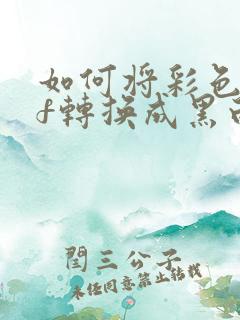 如何将彩色
f轉換成黑
閆三公子
未经同意禁止转载